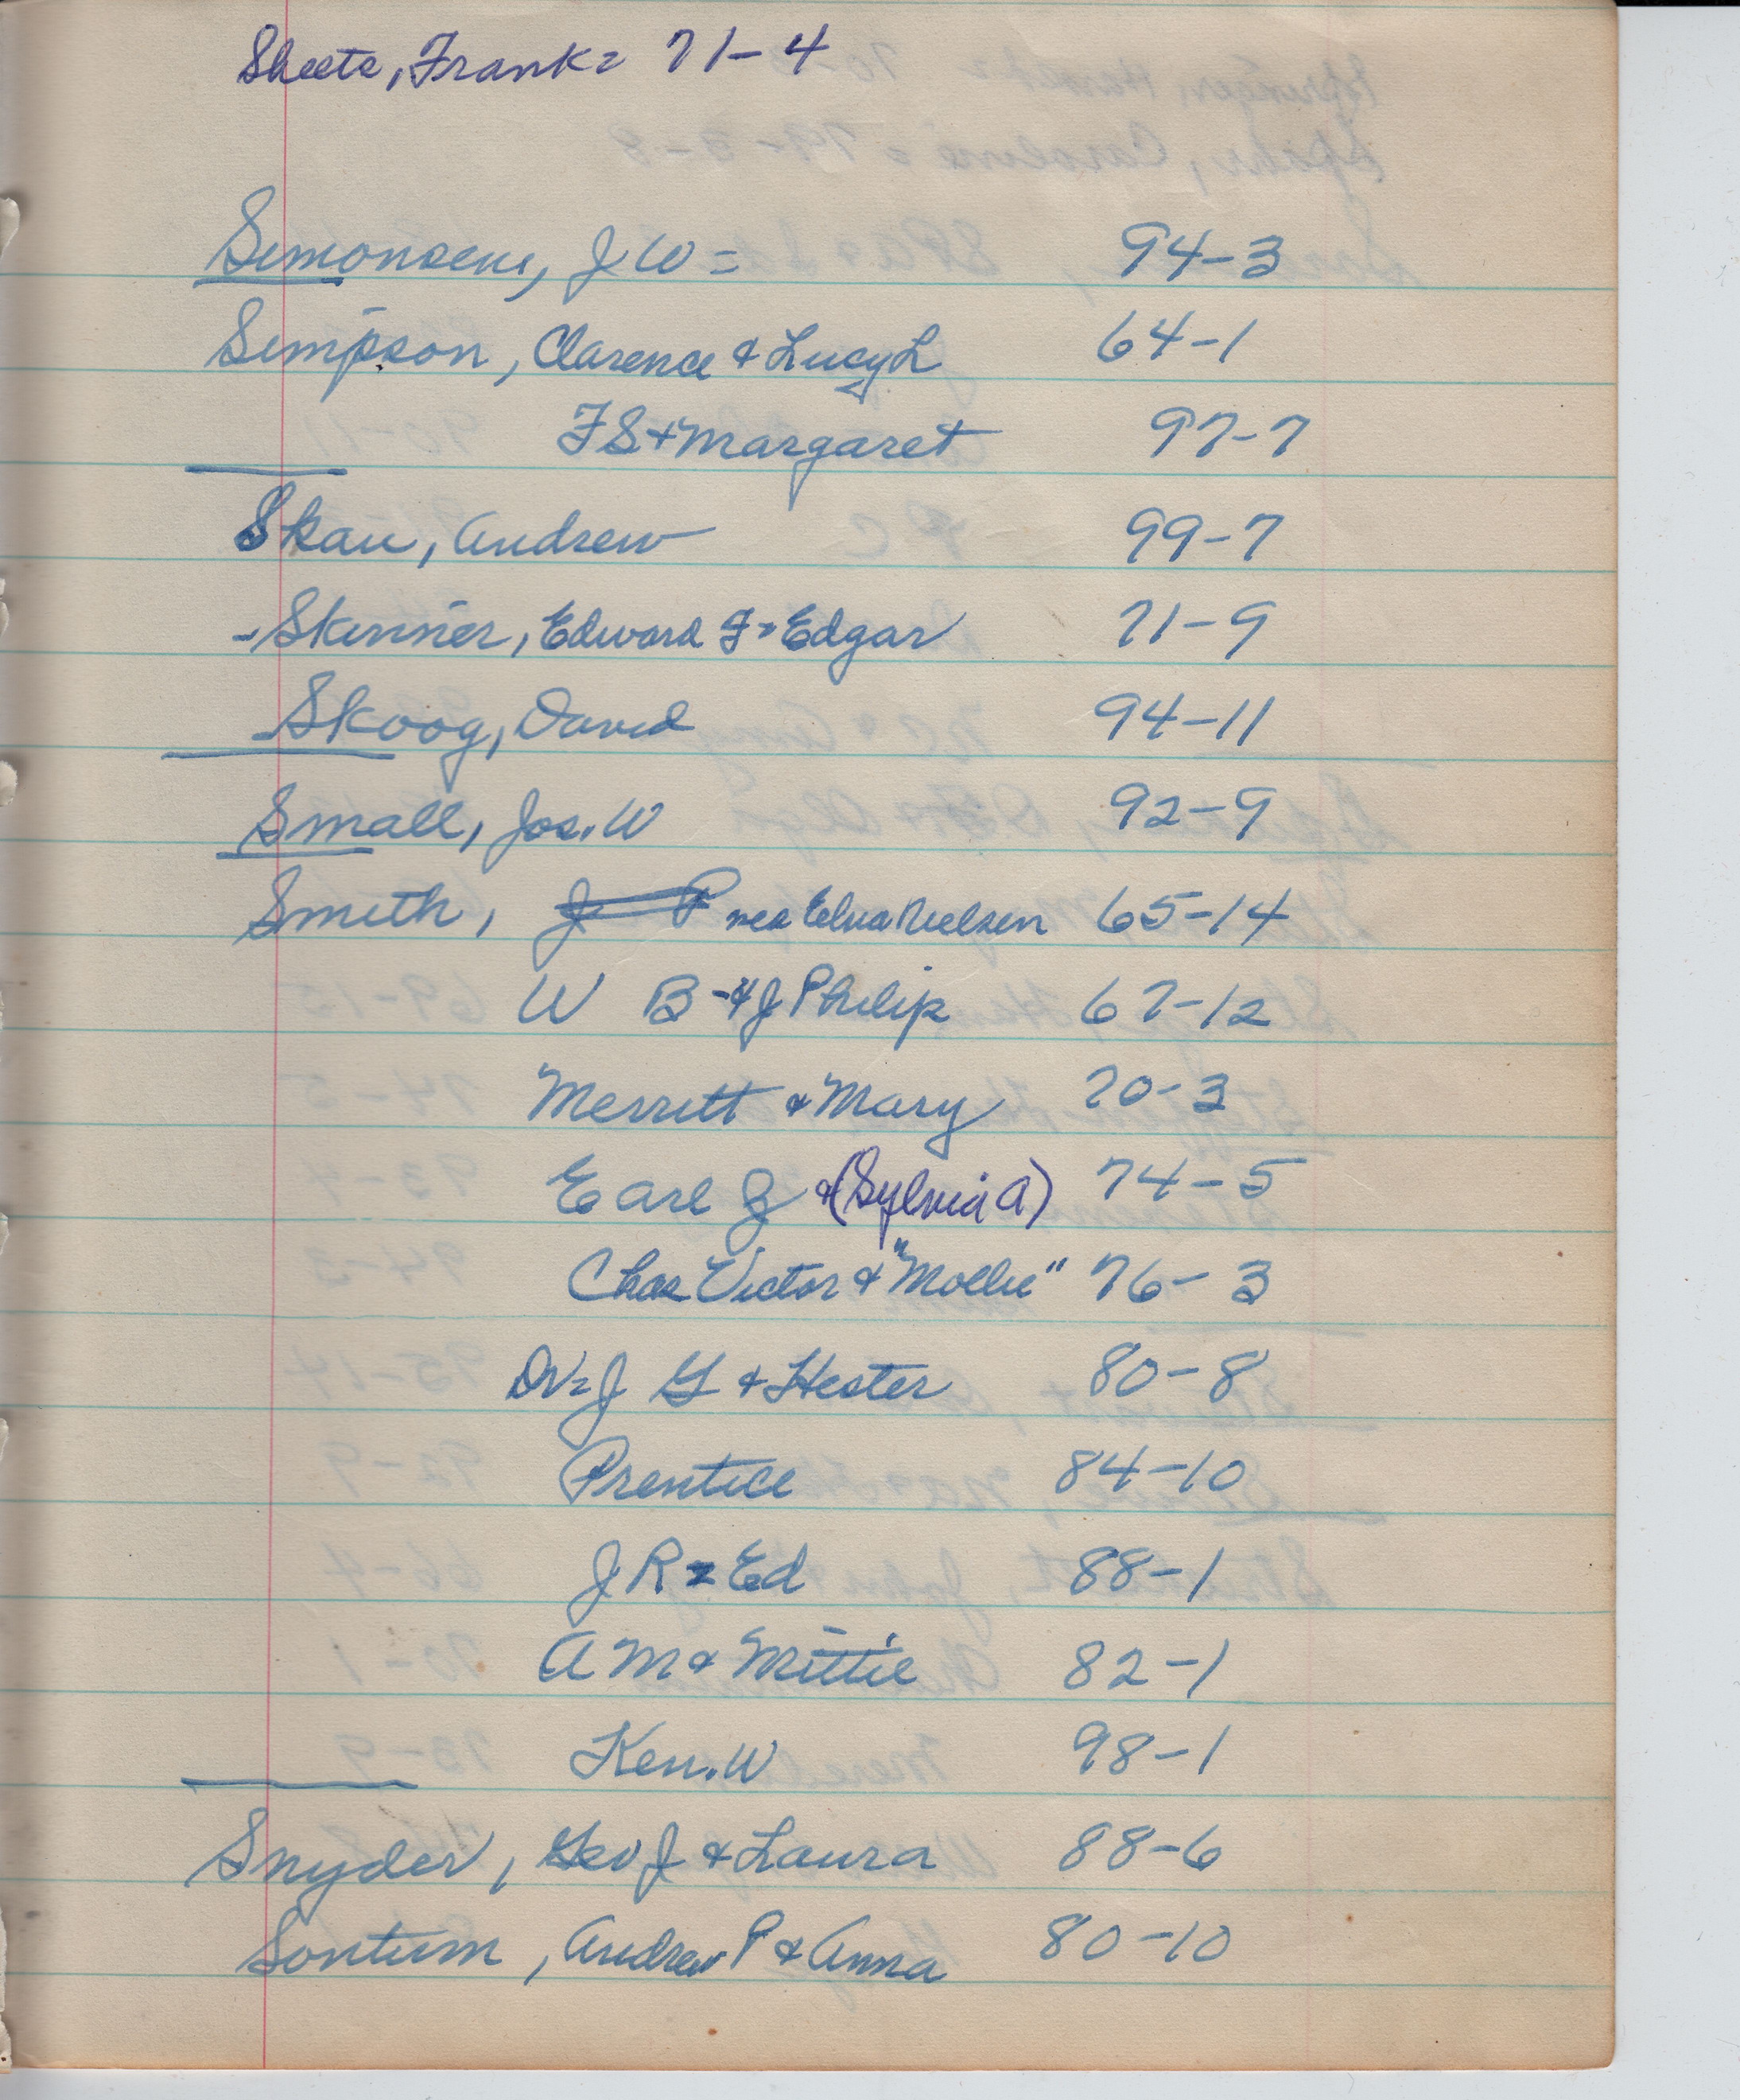 Sheets, Frank = 71-4
Simonsens, J W = 94-3
Simpson, Clarence & Lucy L 64-1
F S + Margaret 97-7
Skau, Andrew 99-7
- Skinner, Edward F = Edgar 71-9
Skoog, David 94-11
Small, Jos. W 92-9
Smith, J P nea Elna Nielsen 65-14
W B - & J Philip 67-12
Merritt & Mary 70-3
Earl J & (Sylvia A) 74-5
Chas Victor & "Mollie" 76-3
Dr = J G & Hester 80-8
Prentice 84-10
J R = Ed 88-1
A M & Mittie 82-1
Ken. W 98-1
Snyder, Geo J & Laura 88-6
Sontum, Andrew P & Anna 80-10